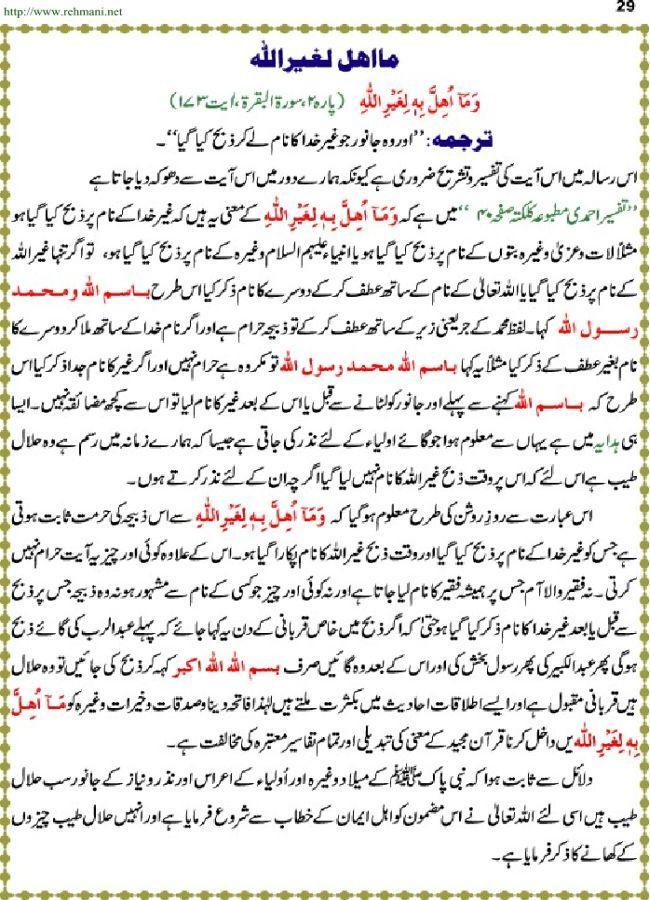 http://www.rehmani.net
29
مااهل لغیراللہ
وَمَآ اُهِلَّ بِهٖ لِغَیْرِ اللهِ (پارہ ۲، سورۃ البقرۃ، ایت ۱۷۳)
ترجمہ: ’’اور وہ جانور جو غیر خدا کا نام لے کر ذبح کیا گیا‘‘۔
اس رسالہ میں اس آیت کی تفسیر و تشریح ضروری ہے کیونکہ ہمارے دور میں اس آیت سے دھوکہ دیا جاتا ہے
’’تفسیر احمدی مطبوعہ کلکتہ صفحہ ۴۰‘‘ میں ہے کہ وَمَآ اُهِلَّ بِهٖ لِغَیْرِ اللهِ کے معنی یہ ہیں کہ غیر خدا کے نام پر ذبح کیا گیا ہو
مثلاً لات و عزیٰ وغیرہ بتوں کے نام پر ذبح کیا گیا ہو یا انبیاء علیہم السلام وغیرہ کے نام پر ذبح کیا گیا ہو، تو اگر تنہا غیر اللہ
کے نام پر ذبح کیا گیا یا اللہ تعالیٰ کے نام کے ساتھ عطف کر کے دوسرے کا نام ذکر کیا اس طرح باسم الله ومحمد
رسول الله کہا۔ لفظ محمد کے جر یعنی زیر کے ساتھ عطف کر کے تو ذبیحہ حرام ہے اور اگر نام خدا کے ساتھ ملا کر دوسرے کا
نام بغیر عطف کے ذکر کیا مثلاً یہ کہا باسم الله محمد رسول الله تو مکروہ ہے حرام نہیں اور اگر غیر کا نام جدا ذکر کیا اس
طرح کہ باسم الله کہنے سے پہلے اور جانور کو لٹانے سے قبل یا اس کے بعد غیر کا نام لیا تو اس سے کچھ مضائقہ نہیں۔ ایسا
ہی ہدایہ میں ہے یہاں سے معلوم ہوا جو گائے اولیاء کے لئے نذر کی جاتی ہے جیسا کہ ہمارے زمانہ میں رسم ہے وہ حلال
طیب ہے اس لئے کہ اس پر وقت ذبح غیر اللہ کا نام نہیں لیا گیا اگرچہ ان کے لئے نذر کرتے ہوں۔
اس عبارت سے روزِ روشن کی طرح معلوم ہو گیا کہ وَمَآ اُهِلَّ بِهٖ لِغَیْرِ اللهِ سے اس ذبیحہ کی حرمت ثابت ہوتی
ہے جس کو غیر خدا کے نام پر ذبح کیا گیا اور وقت ذبح غیر اللہ کا نام پکارا گیا ہو۔ اس کے علاوہ کوئی اور چیز یہ آیت حرام نہیں
کرتی۔ نہ فقیر والا آم جس پر ہمیشہ فقیر کا نام لیا جاتا ہے اور نہ کوئی اور چیز جو کسی کے نام سے مشہور ہو نہ وہ ذبیحہ جس پر ذبح
سے قبل یا بعد غیر خدا کا نام ذکر کیا گیا ہو حتیٰ کہ اگر ذبح میں خاص قربانی کے دن یہ کہا جائے کہ پہلے عبدالرب کی گائے ذبح
ہو گی پھر عبدالکبیر کی پھر رسول بخش کی اور اس کے بعد وہ گائیں صرف بسم الله الله اکبر کہہ کر ذبح کی جائیں تو وہ حلال
ہیں قربانی مقبول ہے اور ایسے اطلاقات احادیث میں بکثرت ملتے ہیں لہٰذا فاتحہ دینا و صدقات و خیرات وغیرہ کو مَآ اُهِلَّ
بِهٖ لِغَیْرِ اللهِ میں داخل کرنا قرآن مجید کے معنی کی تبدیلی اور تمام تفاسیر معتبرہ کی مخالفت ہے۔
دلائل سے ثابت ہوا کہ نبی پاک ﷺ کے میلاد وغیرہ اور اُولیاء کے اعراس اور نذر و نیاز کے جانور سب حلال
طیب ہیں اسی لئے اللہ تعالیٰ نے اس مضمون کو اہل ایمان کے خطاب سے شروع فرمایا ہے اور انہیں حلال طیب چیزوں
کے کھانے کا ذکر فرمایا ہے۔